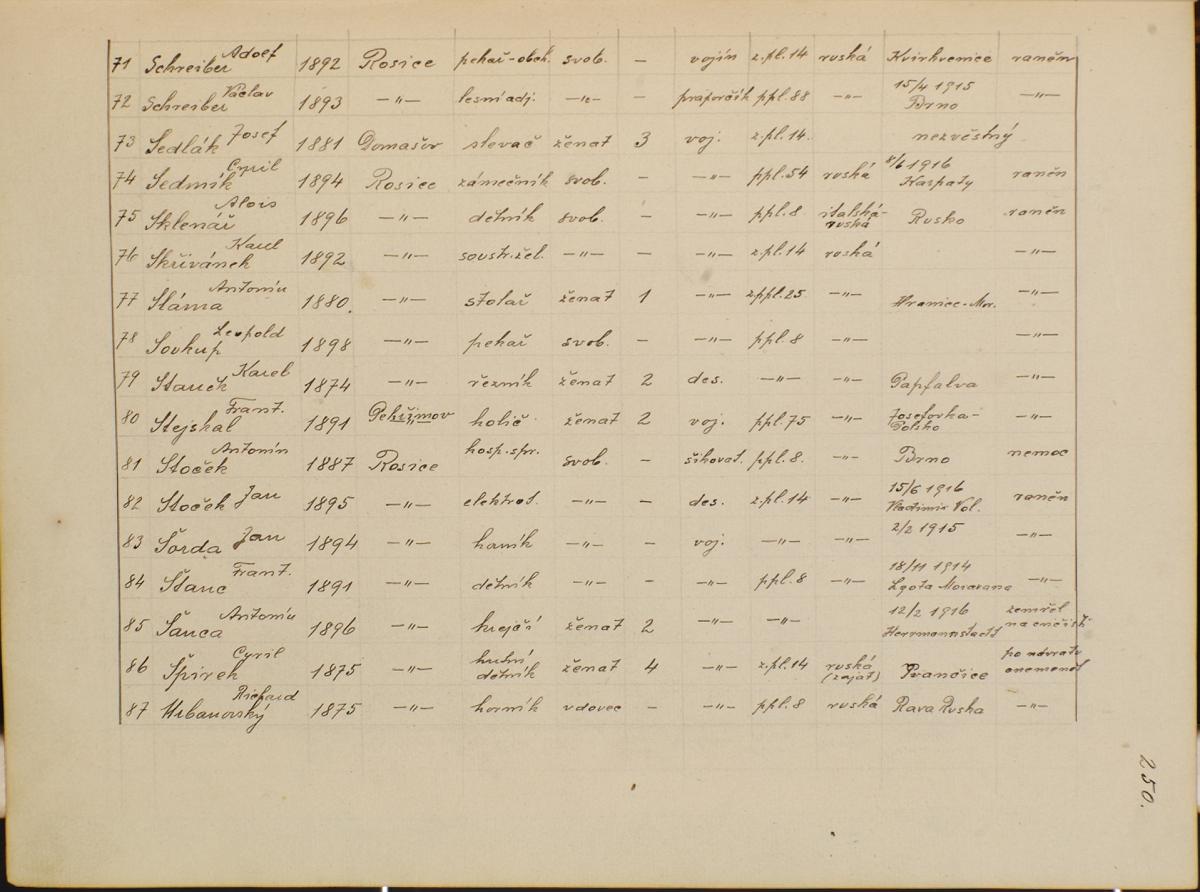 71 Schreiber Adolf 1892 Rosice pekař-obch. svob. — vojín z.pl.14 ruská Kvirkvenice raněn
72 Schreiber Václav 1893 —"— lesní adj. —"— praporčík ppl.88 —"— 15/4 1915 Brno —"—
73 Sedlák Josef 1881 Domašov slevač ženat 3 voj. z.pl.14. nezvěstný
74 Sedmík Cyril 1894 Rosice zámečník svob. — —"— ppl.54 ruská 8/6 1916 Karpaty raněn
75 Sklenář Alois 1896 —"— dělník svob. — —"— ppl.8 italská-ruská Rusko raněn
76 Skřivánek Karel 1892 —"— soustr.žel. —"— — —"— z.pl.14 ruská —"—
77 Sláma Antonín 1880. —"— stolař ženat 1 —"— zppl.25 —"— Hranice-Mor. —"—
78 Soukup Leopold 1898 —"— pekař svob. — —"— ppl.8 —"— —"—
79 Karel 1874 —"— řezník ženat 2 des. —"— —"— Papfalva —"—
80 Stejskal Frant. 1891 holič ženat 2 voj. ppl.75 —"— Josefovka-Polsko —"—
81 Stoček Antonín 1887 Rosice hosp.spr. svob. — šikovat. ppl.8. —"— Brno nemoc
82 Stoček Jan 1895 —"— elektrot. —"— — des. z.pl.14 —"— 15/6 1916 Vladimir Vol. raněn
83 Šorda Jan 1894 —"— horník —"— — voj. —"— —"— 2/2 1915 —"—
84 Štanc Frant. 1891 —"— dělník —"— — —"— ppl.8 —"— 18/11 1914 Lgota Moravana —"—
85 Šanca Antonín 1896 —"— krejčí ženat 2 —"— —"— 12/2 1916 Herrmannstadt zemřel na
86 Špirek Cyril 1875 —"— hutní dělník ženat 4 —"— z.pl.14 ruská (zajat) Ivančice po návratu onemocněl
87 Urbanovský Richard 1875 —"— horník vdovec — —"— ppl.8 ruská Rava Ruska —"—
250.